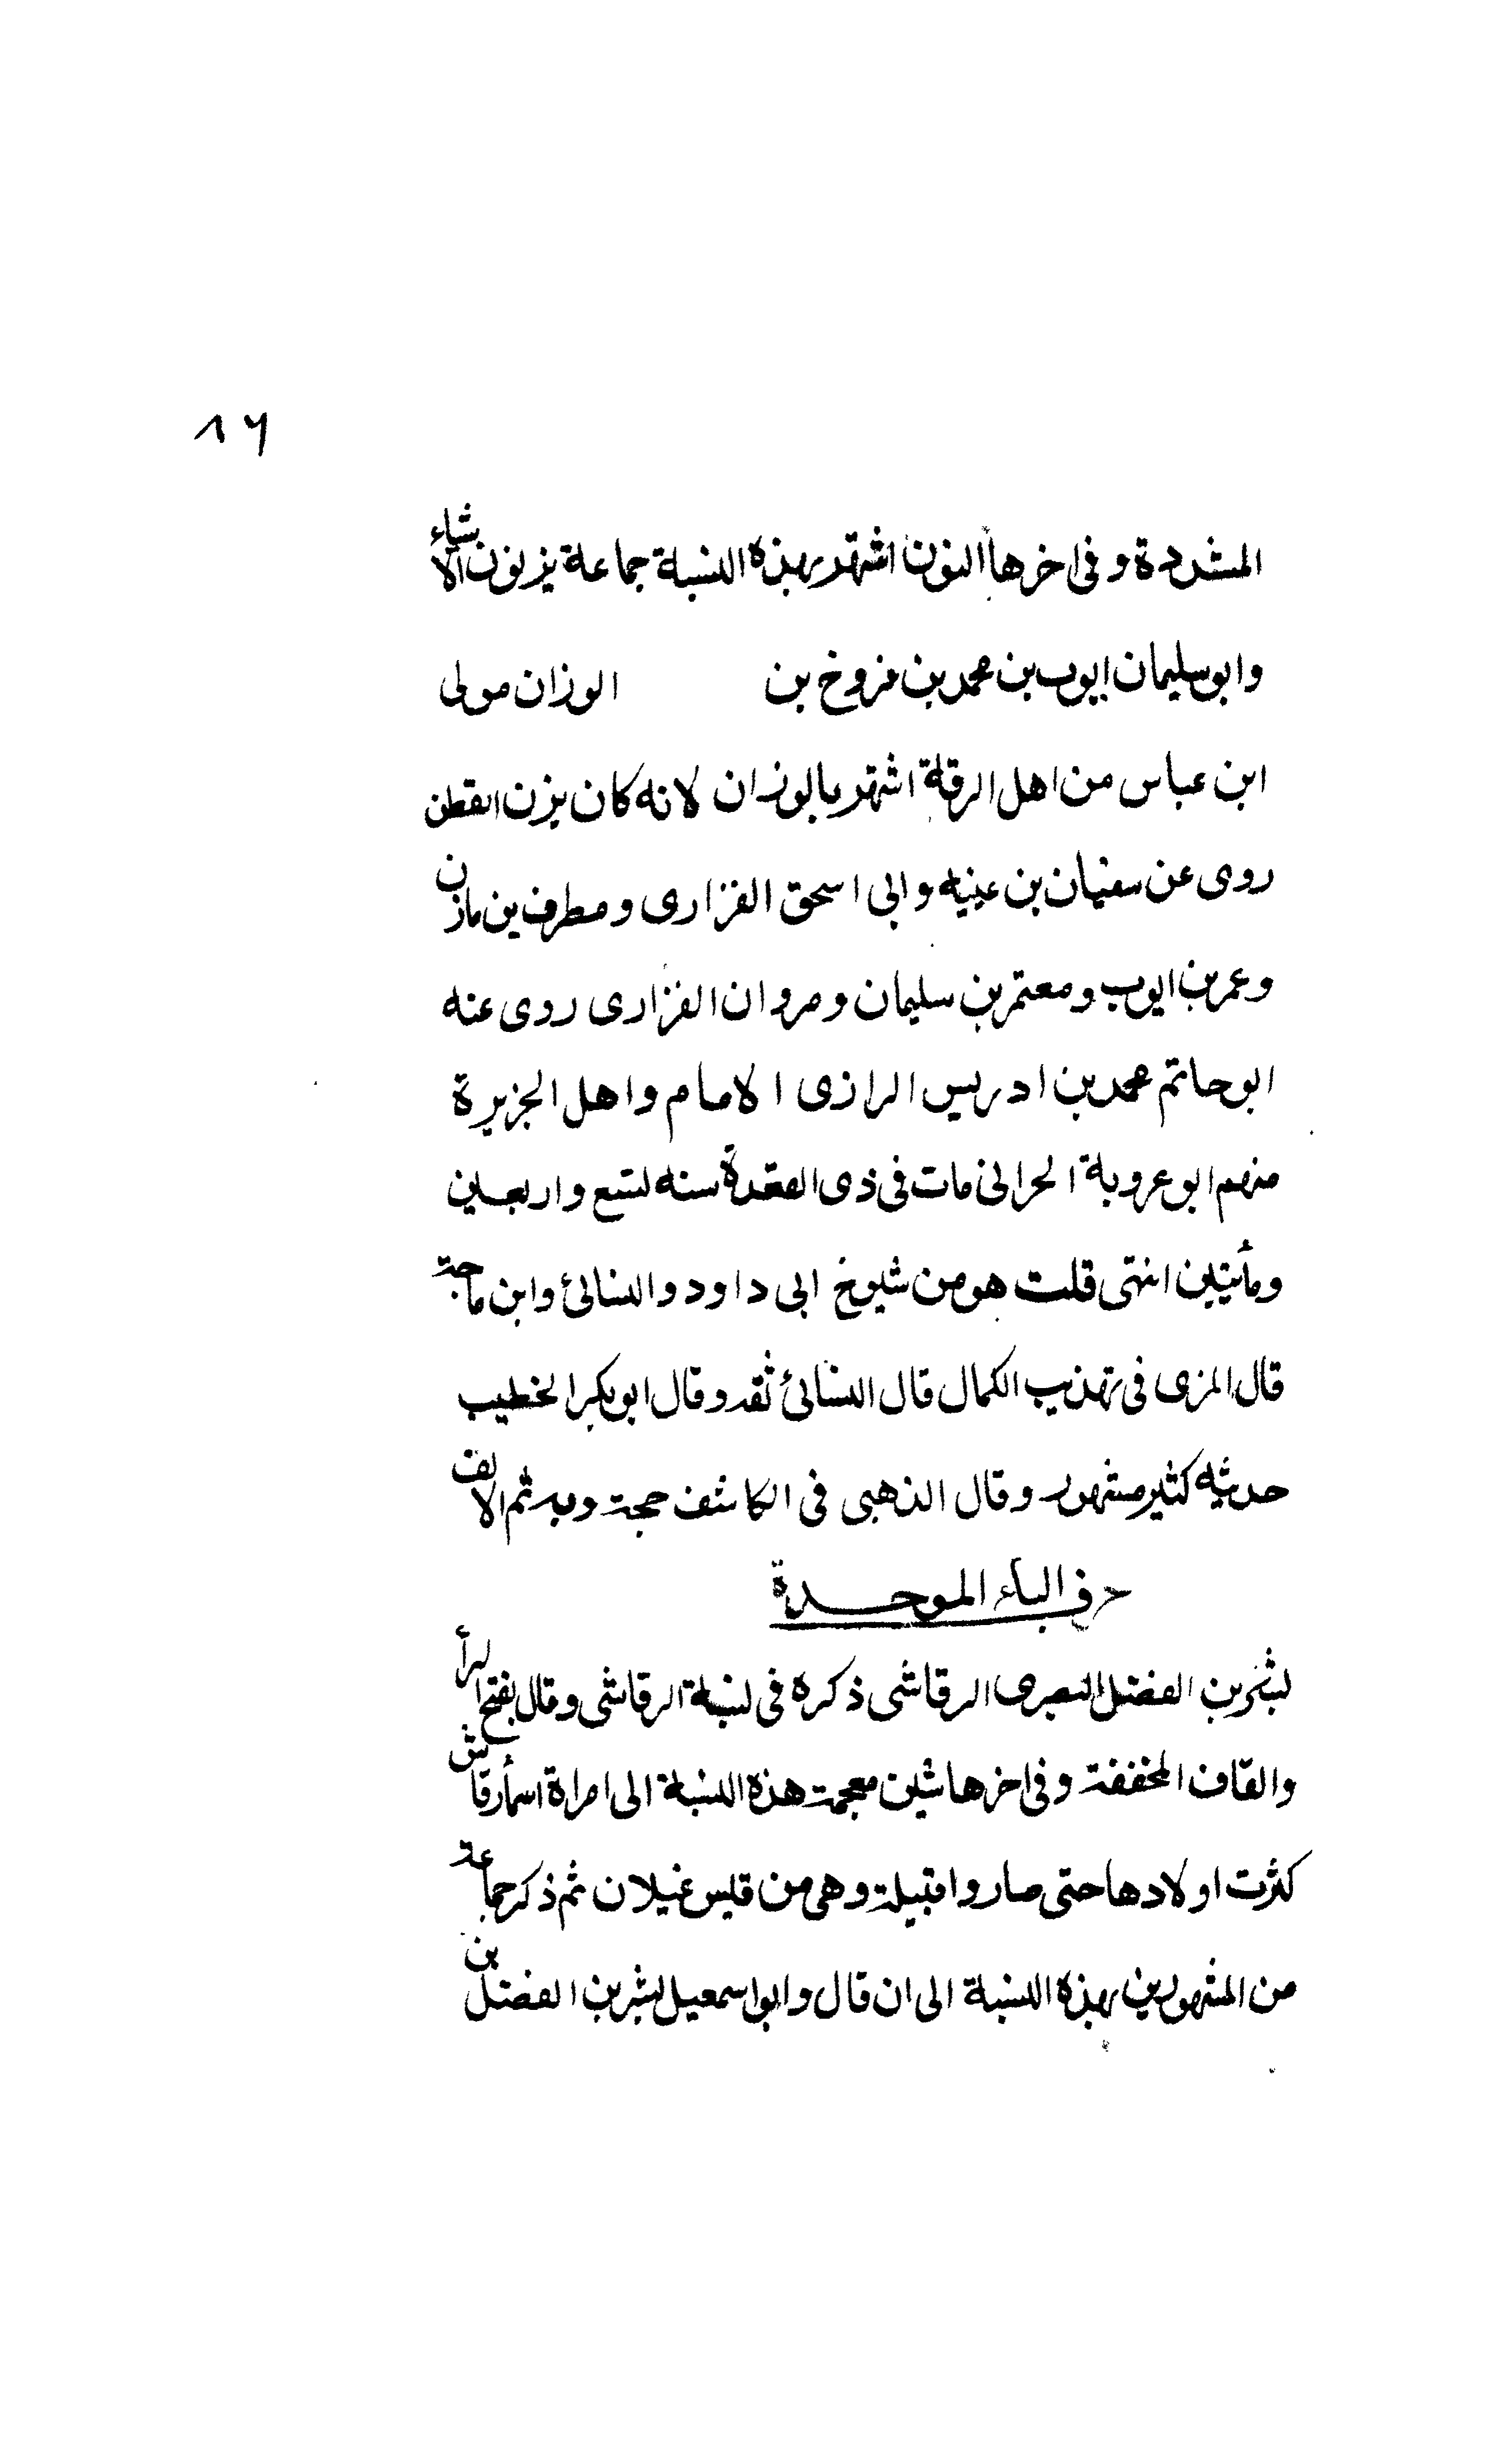 ٨٦
المشددة وفى اخرها النون اشتهر بهذه النسبة جماعة يزنون الاشياء
وابو سليمان ايوب بن محمد بن فروخ بن الوزان مولى
ابن عباس من اهل الرقة اشتهر بالوزان لانه كان يزن القطن
روى عن سفيان بن عينيه وابى اسحق الفزارى ومطرف بن مازن
وعمر بن ايوب ومعتمر بن سليمان ومروان الفزارى روى عنه
ابو حاتم محمد بن ادريس الرازى الامام واهل الجزيرة
منهم ابو عروبة الحرانى مات فى ذى القعدة سنه تسع واربعين
ومأيتين انتهى قلت هو من شيوخ ابى داود والنسائى وابن ماجة
قال المزى فى تهذيب الكمال قال النسائى ثقة وقال ابو بكر الخطيب
حديثه كثير مشهور وقال الذهبى فى الكاشف حجة وبه ثم الالف
حرف الباء الموحدة
بشر بن الفضل البصرى الرقاشى ذكره فى نسبة الرقاشى وقال بفتح الرأ
والقاف المخففة وفى اخرها شين معجمة هذه النسبة الى امراة اسمها رقاش
كثرت اولادها حتى صاروا قبيلة وهى من قيس غيلان ثم ذكر جماعة
من المشهورين بهذه النسبة الى ان قال وابو اسمعيل بشر بن الفضل بن